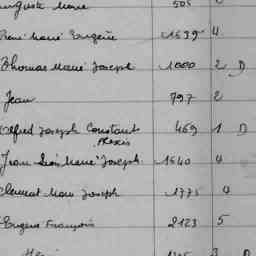 Auguste Marie 505
René Marie Eugène 1539 4
Thomas Marie Joseph 1000 2 D
Jean 797 2
Alfred Joseph Constant 469 1 D
Alexis
Jean Marie Joseph 1640 4
Clément Marie Joseph 1775 4
Eugène François 2123 5
3 D